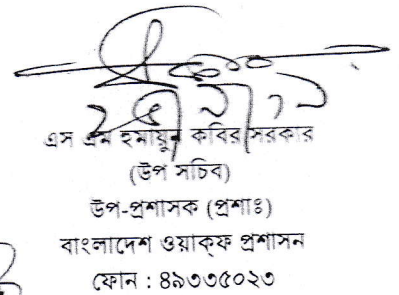 এস এম হুমায়ুন কবির সরকার
(উপ সচিব)
উপ-প্রশাসক (প্রশাঃ)
বাংলাদেশ ওয়াক্‌ফ প্রশাসন
ফোন : ৪৯৩৩৫০২৩